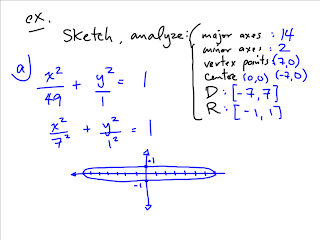 ex.
Sketch, analyze:
major axes : 14
minor axes : 2
vertex points (7,0)
centre (0,0) (-7,0)
D : [-7,7]
R : [-1,1]
a) x²/49 + y²/1 = 1
x²/7² + y²/1² = 1
1
-1